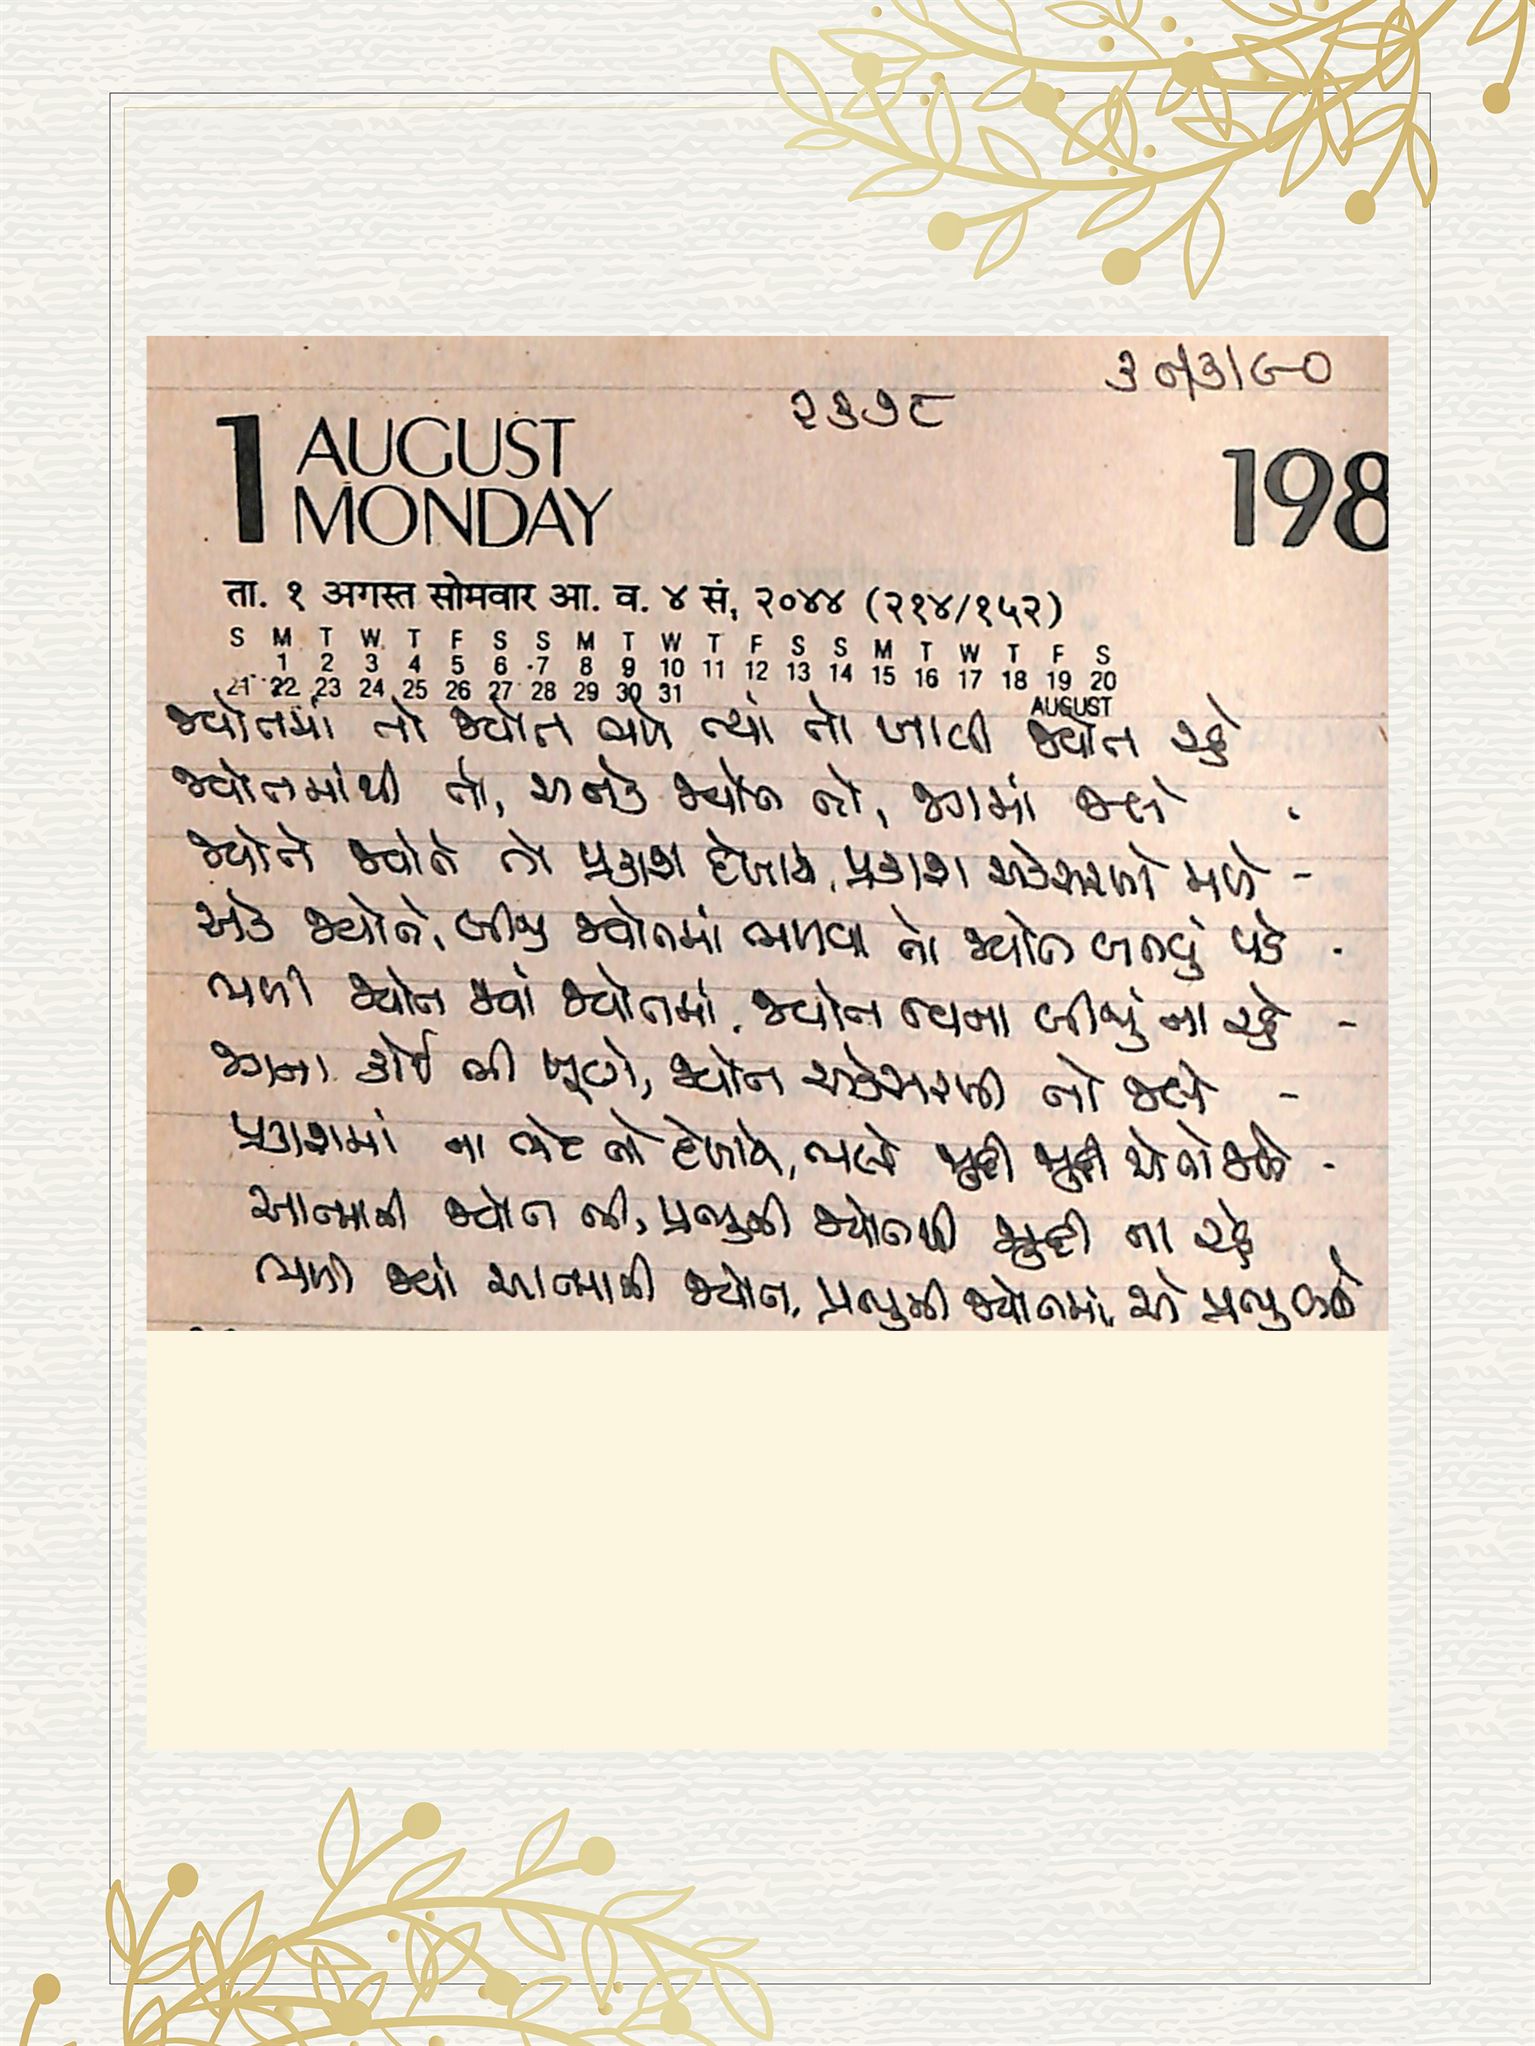 ૩૦/૩/૯૦
૨૩૭૮
1 AUGUST
MONDAY
198
ता. १ अगस्त सोमवार आ. व. ४ सं, २०४४ (२१४/१५२)
S M T W T F S S M T W T F S S M T W T F S
1 2 3 4 5 6 7 8 9 10 11 12 13 14 15 16 17 18 19 20
21 22 23 24 25 26 27 28 29 30 31
AUGUST
જ્યોતમાં તો જ્યોત ભળે ત્યાં તો ખાલી જ્યોત રહે
જ્યોતમાંથી તો, અનેક જ્યોત તો, જગમાં જલે
જ્યોતે જ્યોતે તો પ્રકાશ દેખાયે, પ્રકાશ એકસરખો મળે -
એક જ્યોતે, બીજી જ્યોતમાં ભળવા તો જ્યોત બનવું પડે
ભળી જ્યોત જ્યાં જ્યોતમાં, જ્યોત વિના બીજું ના રહે -
જગના કોઈ ભી ખૂણે, જ્યોત એકસરખી તો જલે -
પ્રકાશમાં ના ભેદ તો દેખાયે, ભલે જુદી જુદી એ તો જલે -
આત્માની જ્યોત ભી, પ્રભુની જ્યોતથી જુદી ના રહે
ભળી જ્યાં આત્માની જ્યોત, પ્રભુની જ્યોતમાં, એ પ્રભુ બને